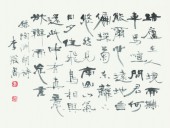 結廬在人境而無
車馬喧問君何
能爾心遠地自
偏採菊東籬下
悠然見南山山
氣日夕佳飛鳥
相與還此中有
真意欲辨已忘言
陶淵明詩